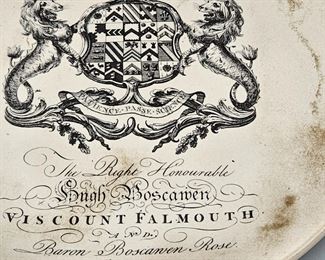 PATIENCE · PASSE · SCIENCE
The Right Honourable
Hugh Boscawen
VISCOUNT FALMOUTH
AND
Baron Boscawen Rose.